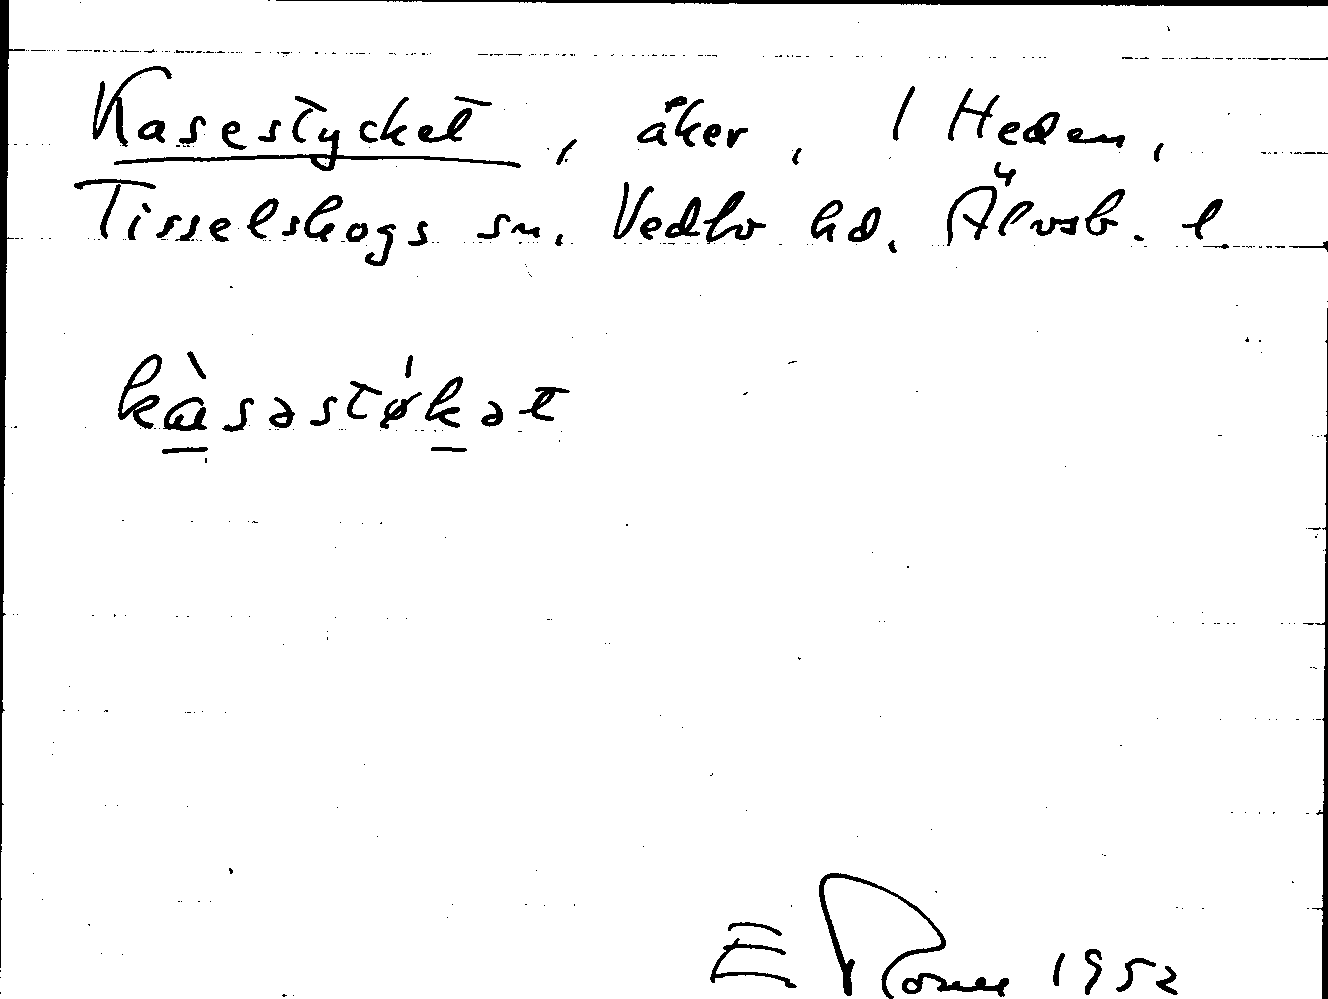 Kasestycket, åker, 1 Heden,
Tisselskogs sn. Vedbo hd. Älvsb. l.
kàsəstø̍kət
E 1952